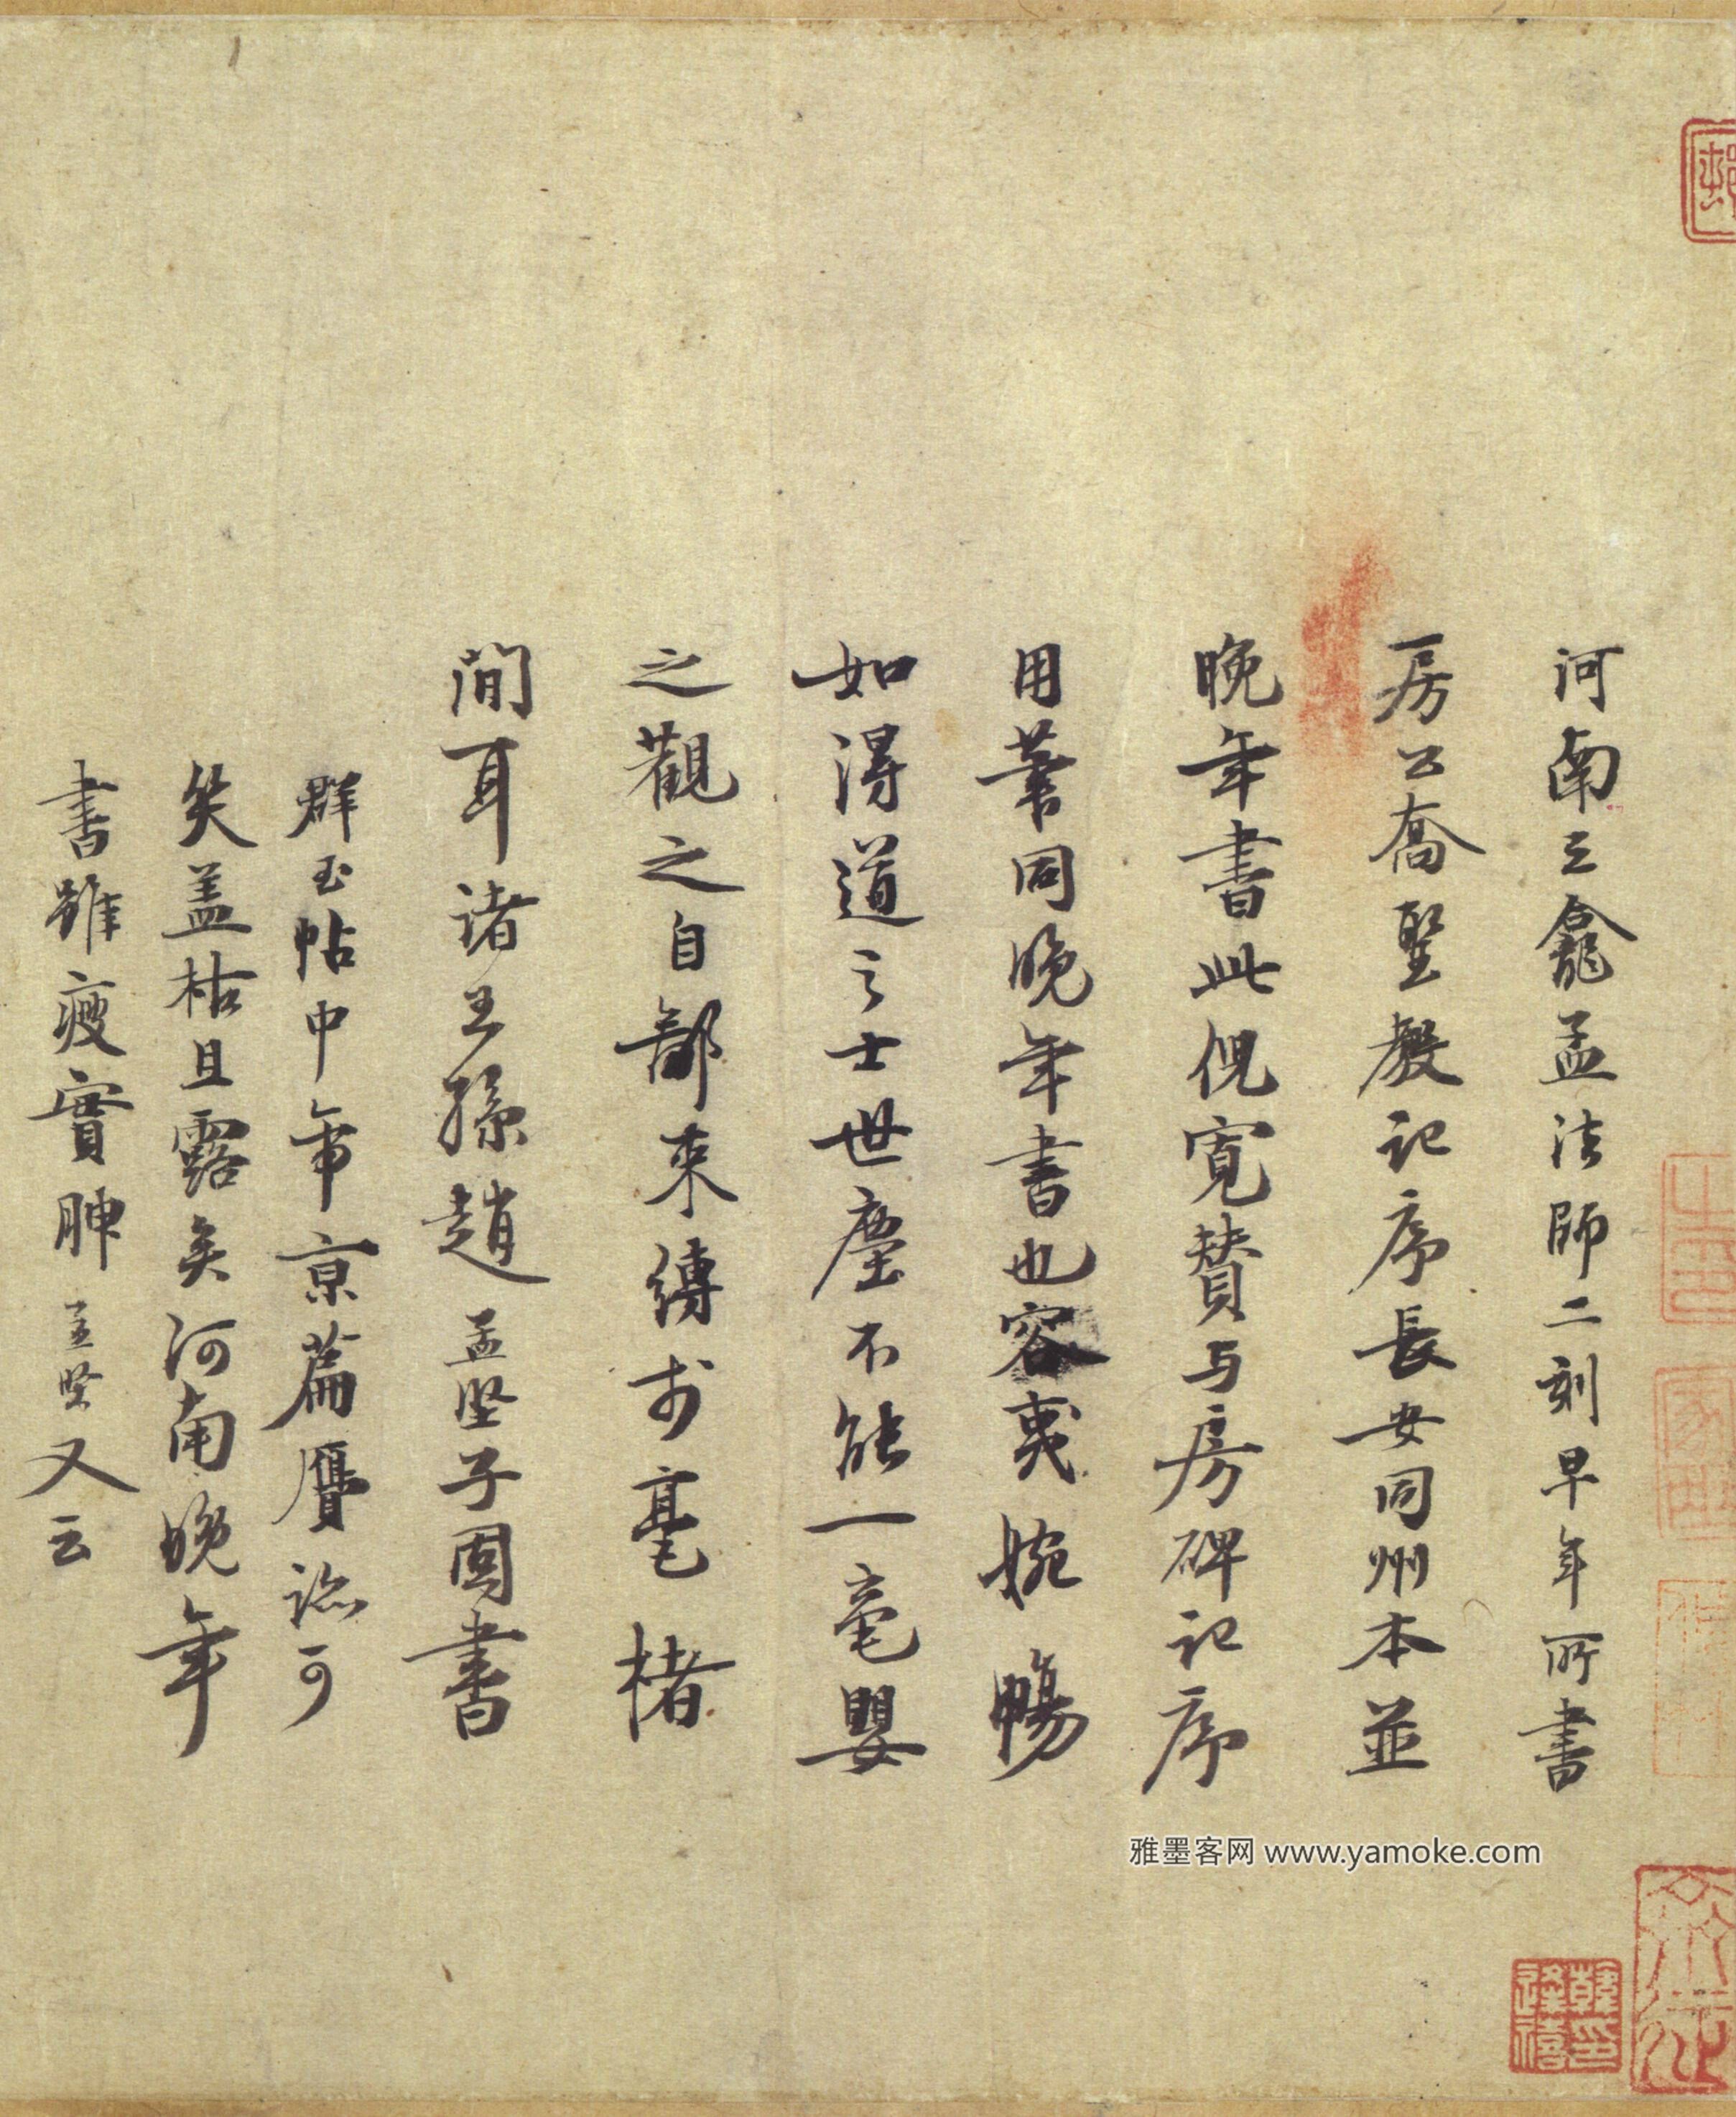 河南三龕孟法師二刻早年所書
房公喬聖教記序長安同州本並
晚年書此倪寬賛与房碑記序
用筆同晚年書也容夷婉暢
如得道之士世塵不能一毫嬰
之觀之自鄙束縛於毫楮
間耳諸王孫趙孟坚子固書
群玉帖中帝京篇贗跡可
笑盖枯且露矣河南晚年
書雖瘦實腴孟坚又云
雅墨客网 www.yamoke.com